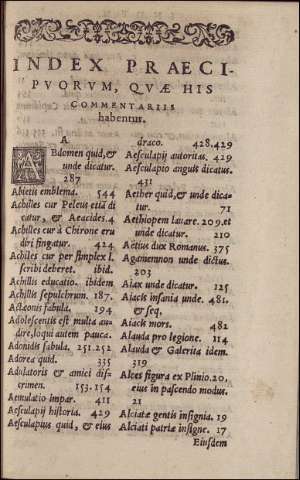 INDEX PRAECI-
PVORVM, QVÆ HIS
COMMENTARIIS
habentur.
A
ABdomen quid, &
unde dicatur.
287
Abietis emblema. 544
Achilles cur Peleus etiã di
catur, & Aeacides. 4
Achilles cur à Chirone eru
diri fingatur. 424
Achilles cur per simplex l.
scribi deberet. ibid.
Achillis educatio. ibidem
Achillis sepulchrum. 187.
Actæonis fabula. 194
Adolescentis est multa au-
dire, loqui autem pauca.
Adonidis fabula. 251.252
Adorea quid. 335
Adulatoris & amici dis-
crimen. 153.154
Aemulatio impar. 411
Aesculapij historia. 429
Aesculapius quid, & eius
draco. 428.429
Aesculapij autoritas. 429
Aesculapio anguis dicatus.
431
Aether quid, & unde dica-
tur. 71
Aethiopem lauare. 209. et
unde dicatur. 210
Aetius dux Romanus. 375
Agamemnon unde dictus.
203
Aiax unde dicatur. 125
Aiacis insania unde. 481.
& seq.
Aiacis mors. 482
Alauda pro legione. 114
Alauda & Galerita idem.
319
Alces figura ex Plinio. 20,
eius in pascendo modus.
21
Alciatæ gentis insignia. 19
Alciati patriæ insigne. 17
Eiusdem